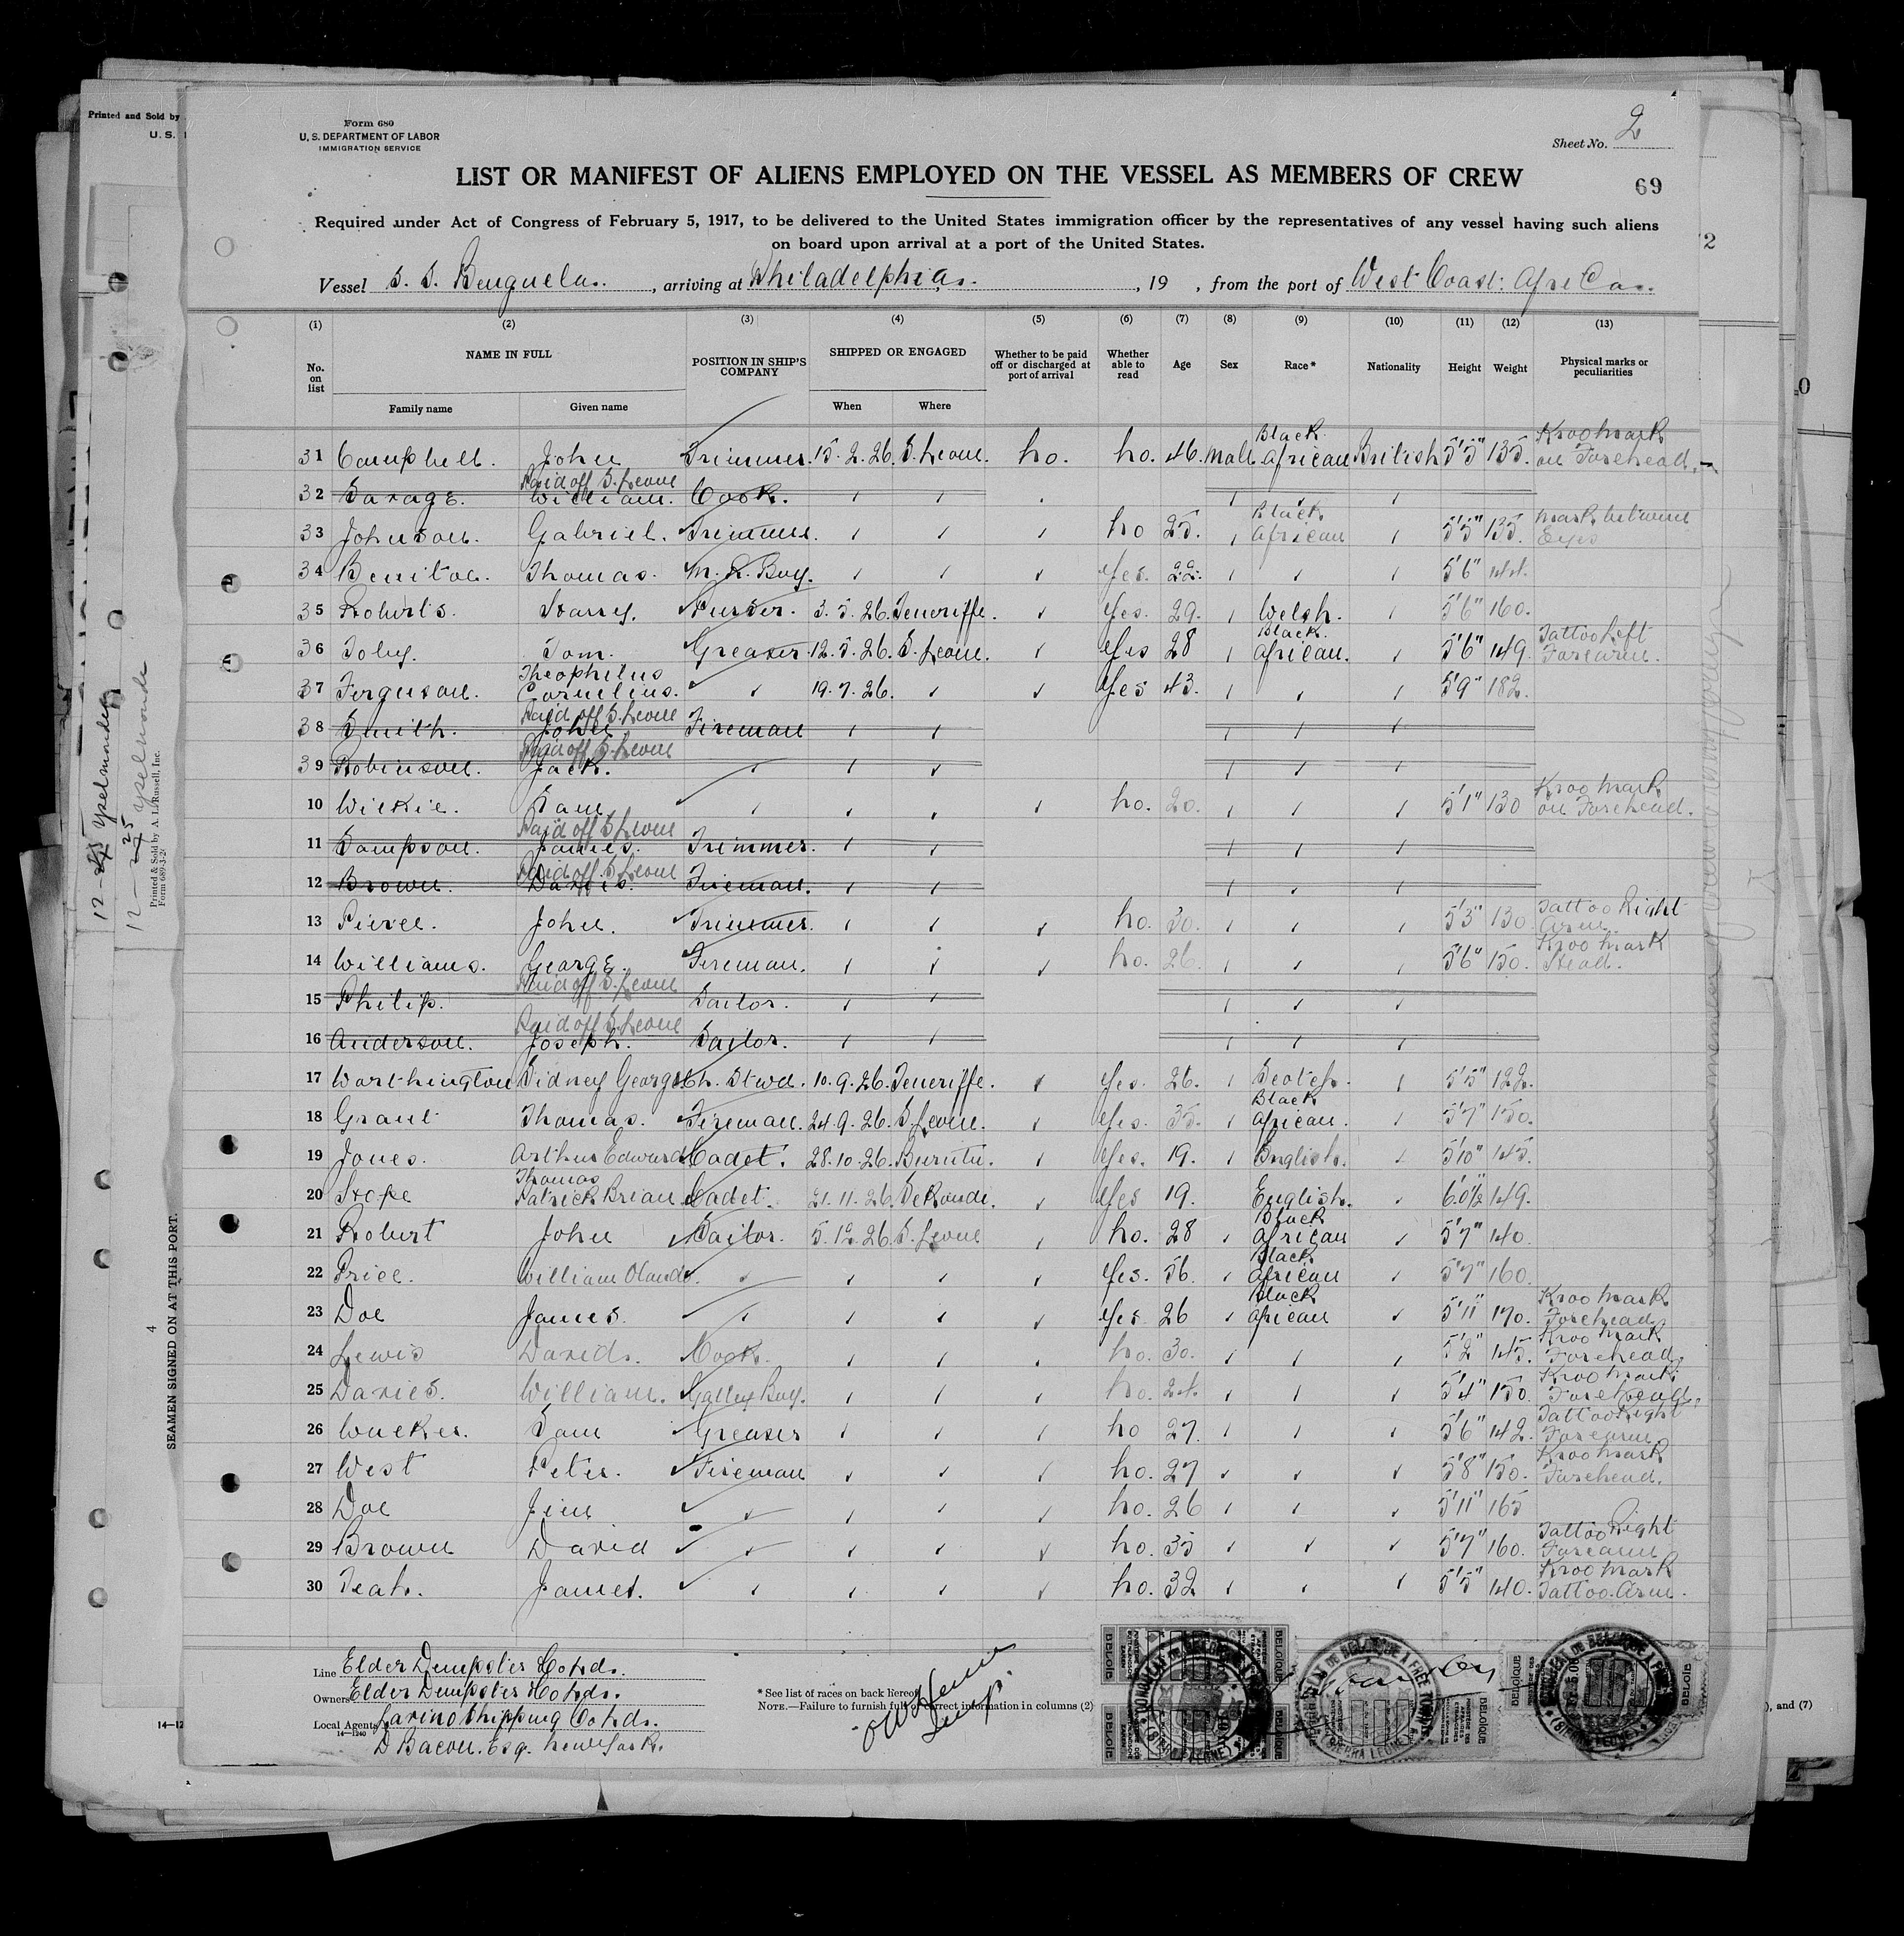 Printed and Sold by
U. S.
Form 680
U. S. DEPARTMENT OF LABOR
IMMIGRATION SERVICE
Sheet No. 2
LIST OR MANIFEST OF ALIENS EMPLOYED ON THE VESSEL AS MEMBERS OF CREW
69
Required under Act of Congress of February 5, 1917, to be delivered to the United States immigration officer by the representatives of any vessel having such aliens
on board upon arrival at a port of the United States.
Vessel S. S. Benguela. , arriving at Philadelphia. , 19 , from the port of West Coast: Africa.
(1) (2) (3) (4) (5) (6) (7) (8) (9) (10) (11) (12) (13)
No. on list NAME IN FULL POSITION IN SHIP'S COMPANY SHIPPED OR ENGAGED Whether to be paid off or discharged at port of arrival Whether able to read Age Sex Race* Nationality Height Weight Physical marks or peculiarities
Family name Given name When Where
31 Campbell. John Trimmer. 15. 2. 26. S. Leone. No. No. 46. Male Black African British 5'5" 135. Kroo Mark on Forehead.
32 Savage. William. Paid off S. Leone Cook.
33 Johnson. Gabriel. Trimmer. No 25. Black African 5'5" 135. Mark between Eyes
34 Thomas. M. R. Boy. Yes. 22. 5'6" 144.
35 Roberts. Harry. 3. 5. 26. Teneriffe. Yes. 29. Welsh. 5'6" 160.
36 Toby. Tom. Greaser. 12. 5. 26. S. Leone. Yes 28 Black African. 5'6" 149. Tattoo Left Forearm.
37 Ferguson. Theophilus Cornelius. 19. 7. 26. Yes 43. 5'9" 182.
38 Smith. John Paid off S. Leone Fireman
39 Robinson. Jack. Paid off S. Leone
10 Wilkie. Sam No. 20. 5'1" 130 Kroo Mark on Forehead.
11 Sampson. James. Paid off S. Leone Trimmer.
12 Brown. Davis. Paid off S. Leone Fireman.
13 Pierce. John. Trimmer. No. 30. 5'3" 130 Tattoo Right Arm.
14 Williams. George. Fireman. No. 26. 5'6" 150. Kroo Mark Head.
15 Philip. Paid off S. Leone Sailor.
16 Anderson. Joseph. Paid off S. Leone Sailor.
17 Worthington Sidney George Ch. Stwd. 10. 9. 26. Teneriffe. Yes. 26. Scotch. 5'5" 122.
18 Grant Thomas. Fireman. 24. 9. 26. S. Leone. Yes. 35. Black African. 5'7" 150.
19 Jones. Arthur Edward Cadet. 28. 10. 26. Burutu. Yes. 19. English. 5'10" 145.
20 Hope Thomas Patrick Brian Cadet. 21. 11. 26. Sekondi. Yes 19. English. 6'0½ 149.
21 Robert John Sailor. 5. 12. 26. S. Leone No. 28 Black African 5'7" 140.
22 Price. William Yes. 56. Black African 5'7" 160.
23 Doe James. Yes 26 Black African 5'11" 170. Kroo Mark Forehead
24 Lewis Davids. Cook. No. 30. 5'2" 145. Kroo Mark Forehead.
25 Davies. William. Galley Boy. No. 24. 5'4" 150. Kroo Mark Forehead.
26 Sam Greaser No 27. 5'6" 142. Tattoo Right Forearm.
27 West Peter. Fireman No. 27 5'8" 150. Kroo Mark Forehead.
28 Doe Jim No. 26 5'11" 165
29 Brown David No. 35 5'7" 160. Tattoo Right Forearm
30 Teah. James. No. 32 5'5" 140. Kroo Mark Tattoo Arm.
SEAMEN SIGNED ON AT THIS PORT.
4
12- Yselmonde
12- 25 Yselmonde
Printed & Sold by A. L. Russell, Inc.
Line Elder Dempster Co Ltd.
Owners Elder Dempster Co Ltd.
Local Agents Shipping Co Ltd.
14—1240
D Bacon. Esq. New York.
* See list of races on back hereof.
NOTE.—Failure to furnish full or correct information in columns (2)
, and (7)
14—12
BELGIQUE
BELGIQUE
BELGIQUE
BELGIQUE
(SIERRA LEONE)